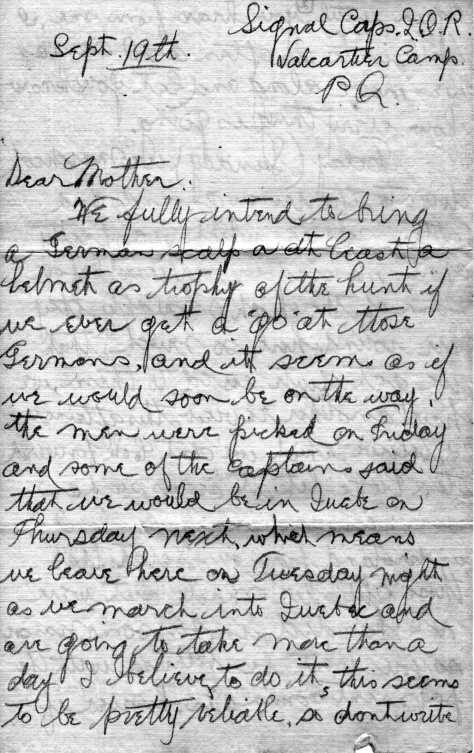 Signal Caps. Q.O.R.
Sept. 19th. Valcartier Camp.
P.Q.
Dear Mother.
We fully intend to bring
a German scalp a at least a
helmet as trophy of the hunt if
we ever get a "go" at those
Germans, and it seems as if
we would soon be on the way.
the men were picked on Friday
and some of the captains said
that we would be in Quebe on
Thursday next, which means
we leave here on Tuesday night
as we march into Quebec and
are going to take more than a
day I believe, to do it, this seems
to be pretty reliable, so dont write